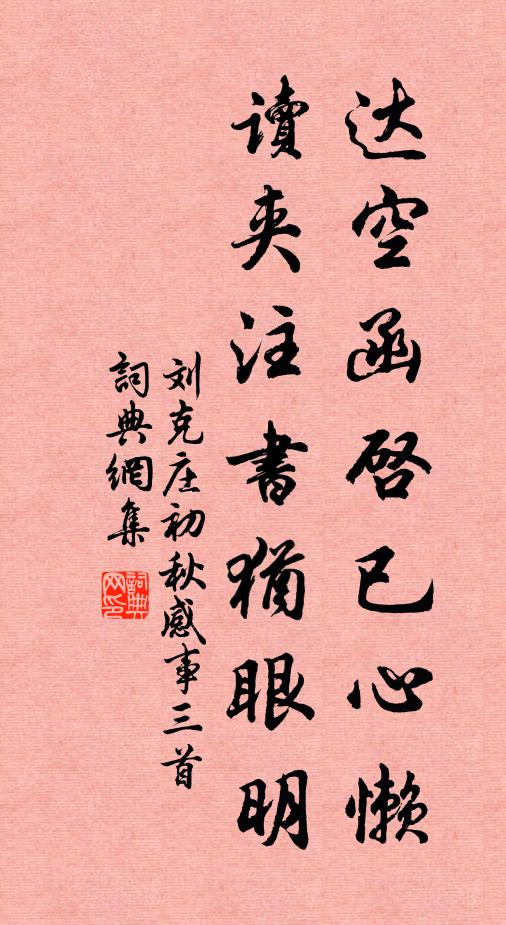 达空函啓已心懒
讀夹注書猶眼明
刘克庄初秋感事三首
詞典網集
詞典网印